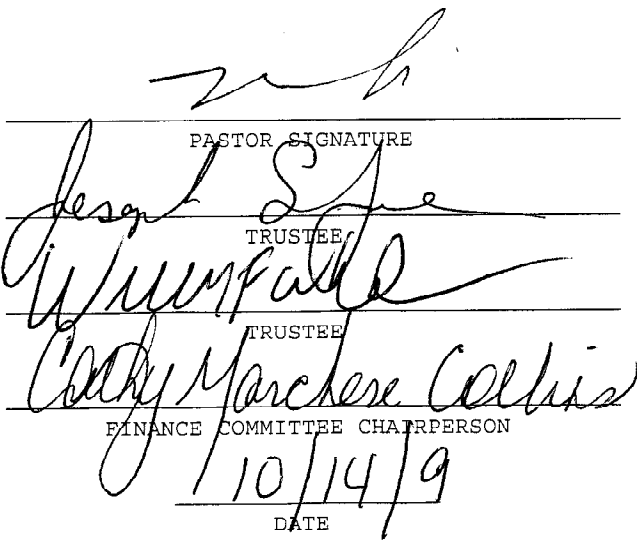 PASTOR SIGNATURE
Joseph S
TRUSTEE
TRUSTEE
Cathy Marchese Collins
FINANCE COMMITTEE CHAIRPERSON
10/14/9
DATE